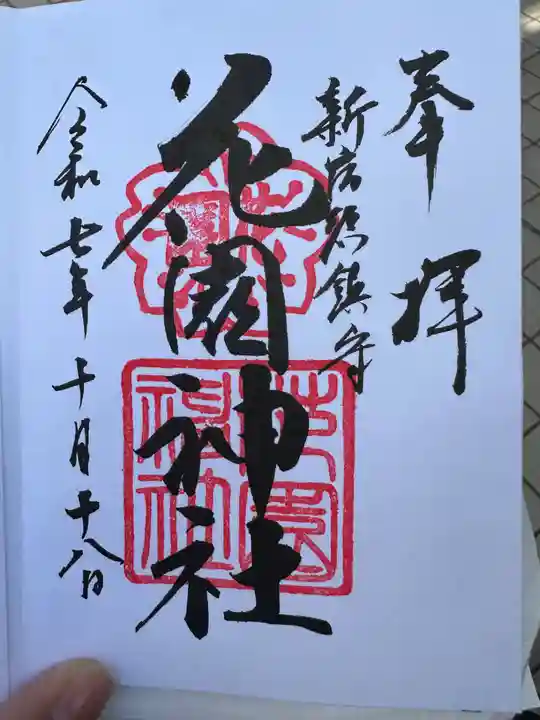 奉拝
新宿総鎮守
花園神社
令和七年十月十八日
花園
花園神社